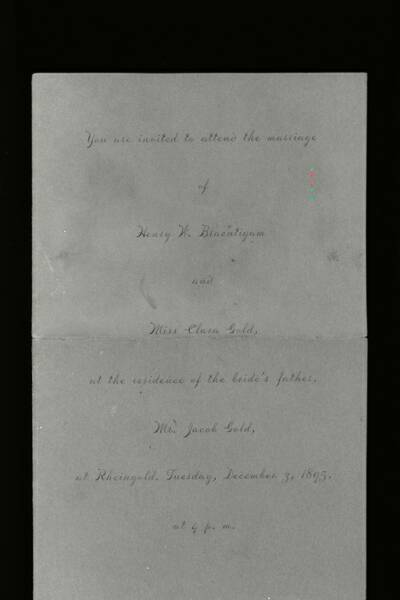 You are invited to attend the marriage
of
Henry W. Braeutigam
and
Miss Clara Gold,
at the residence of the bride's father,
Mr. Jacob Gold,
at Rheingold, Tuesday, December 3, 1895.
at 4 p. m.